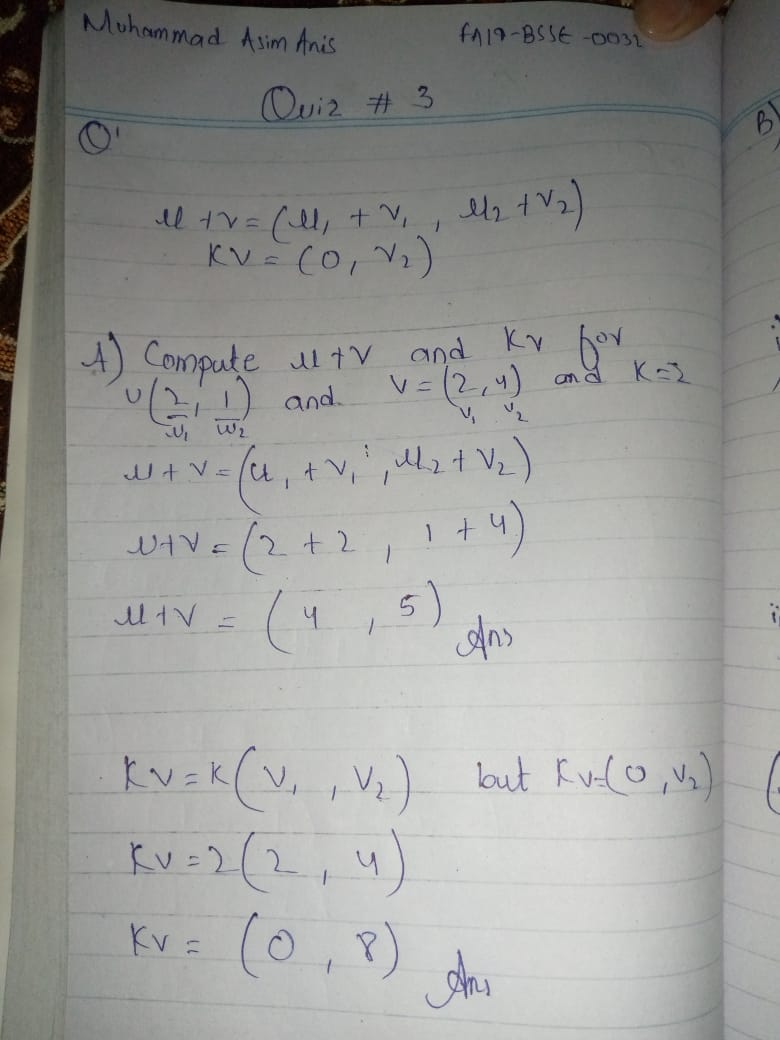 Muhammad Asim Anis FA19-BSSE-0032
Quiz # 3
Q1
u+v=(u1 + v1, u2+v2)
Kv = (0, v2)
A) Compute u+v and Kv for
U(2, 1) and v=(2,4) and K=2
u1 u2 v1 v2
u+v=(u1+v1, u2+v2)
u+v=(2+2, 1+4)
u+v = (4, 5) Ans
Kv=K(v1, v2) but Kv=(0,v2)
Kv=2(2, 4)
Kv= (0, 8) Ans
B)